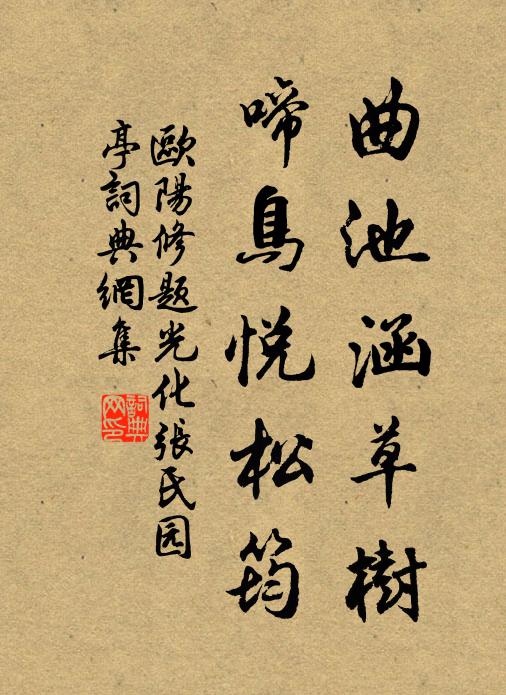 曲池涵草樹
啼鳥悦松筠
歐陽修題光化張氏园
亭詞典網集
詞典網印